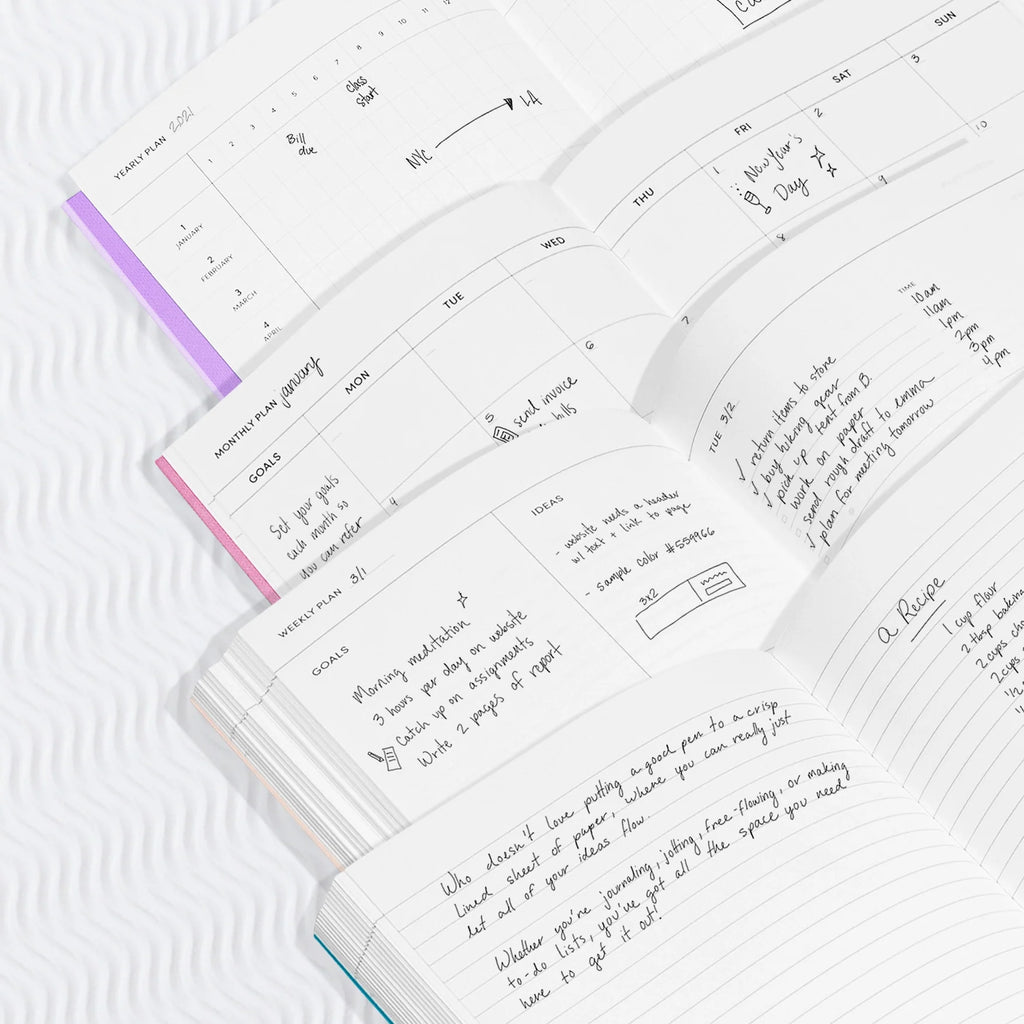 YEARLY PLAN 2021
1 2 3 4 5 6 7 8 9 10 11 12
Bill
due
class
start
NYC
LA
1
JANUARY
2
FEBRUARY
3
MARCH
4
APRIL
MONTHLY PLAN january
GOALS
MON
TUE
WED
THU
FRI
SAT
SUN
Set your goals
each month so
you can refer
4
5
send invoice
bills
6
7
1
New Year's
Day
2
3
8
9
10
WEEKLY PLAN 3/1
GOALS
Morning meditation
3 hours per day on website
Catch up on assignments
Write 2 pages of report
IDEAS
- website needs a header
w/ text + link to page
- sample color #559966
3x2
TUE 3/2
✓ return items to store
✓ buy hiking gear
✓ pick up tent from B.
work on paper
send rough draft to emma
✓ plan for meeting tomorrow
TIME
10am
11am
1pm
2pm
3pm
4pm
Who doesn't love putting a good pen to a crisp
lined sheet of paper, where you can really just
let all of your ideas flow.
Whether you're journaling, jotting, free-flowing, or making
to-do lists, you've got all the space you need
here to get it out!
a Recipe
1 cup flour
2 tbsp
2 cups
2 cups
1/2